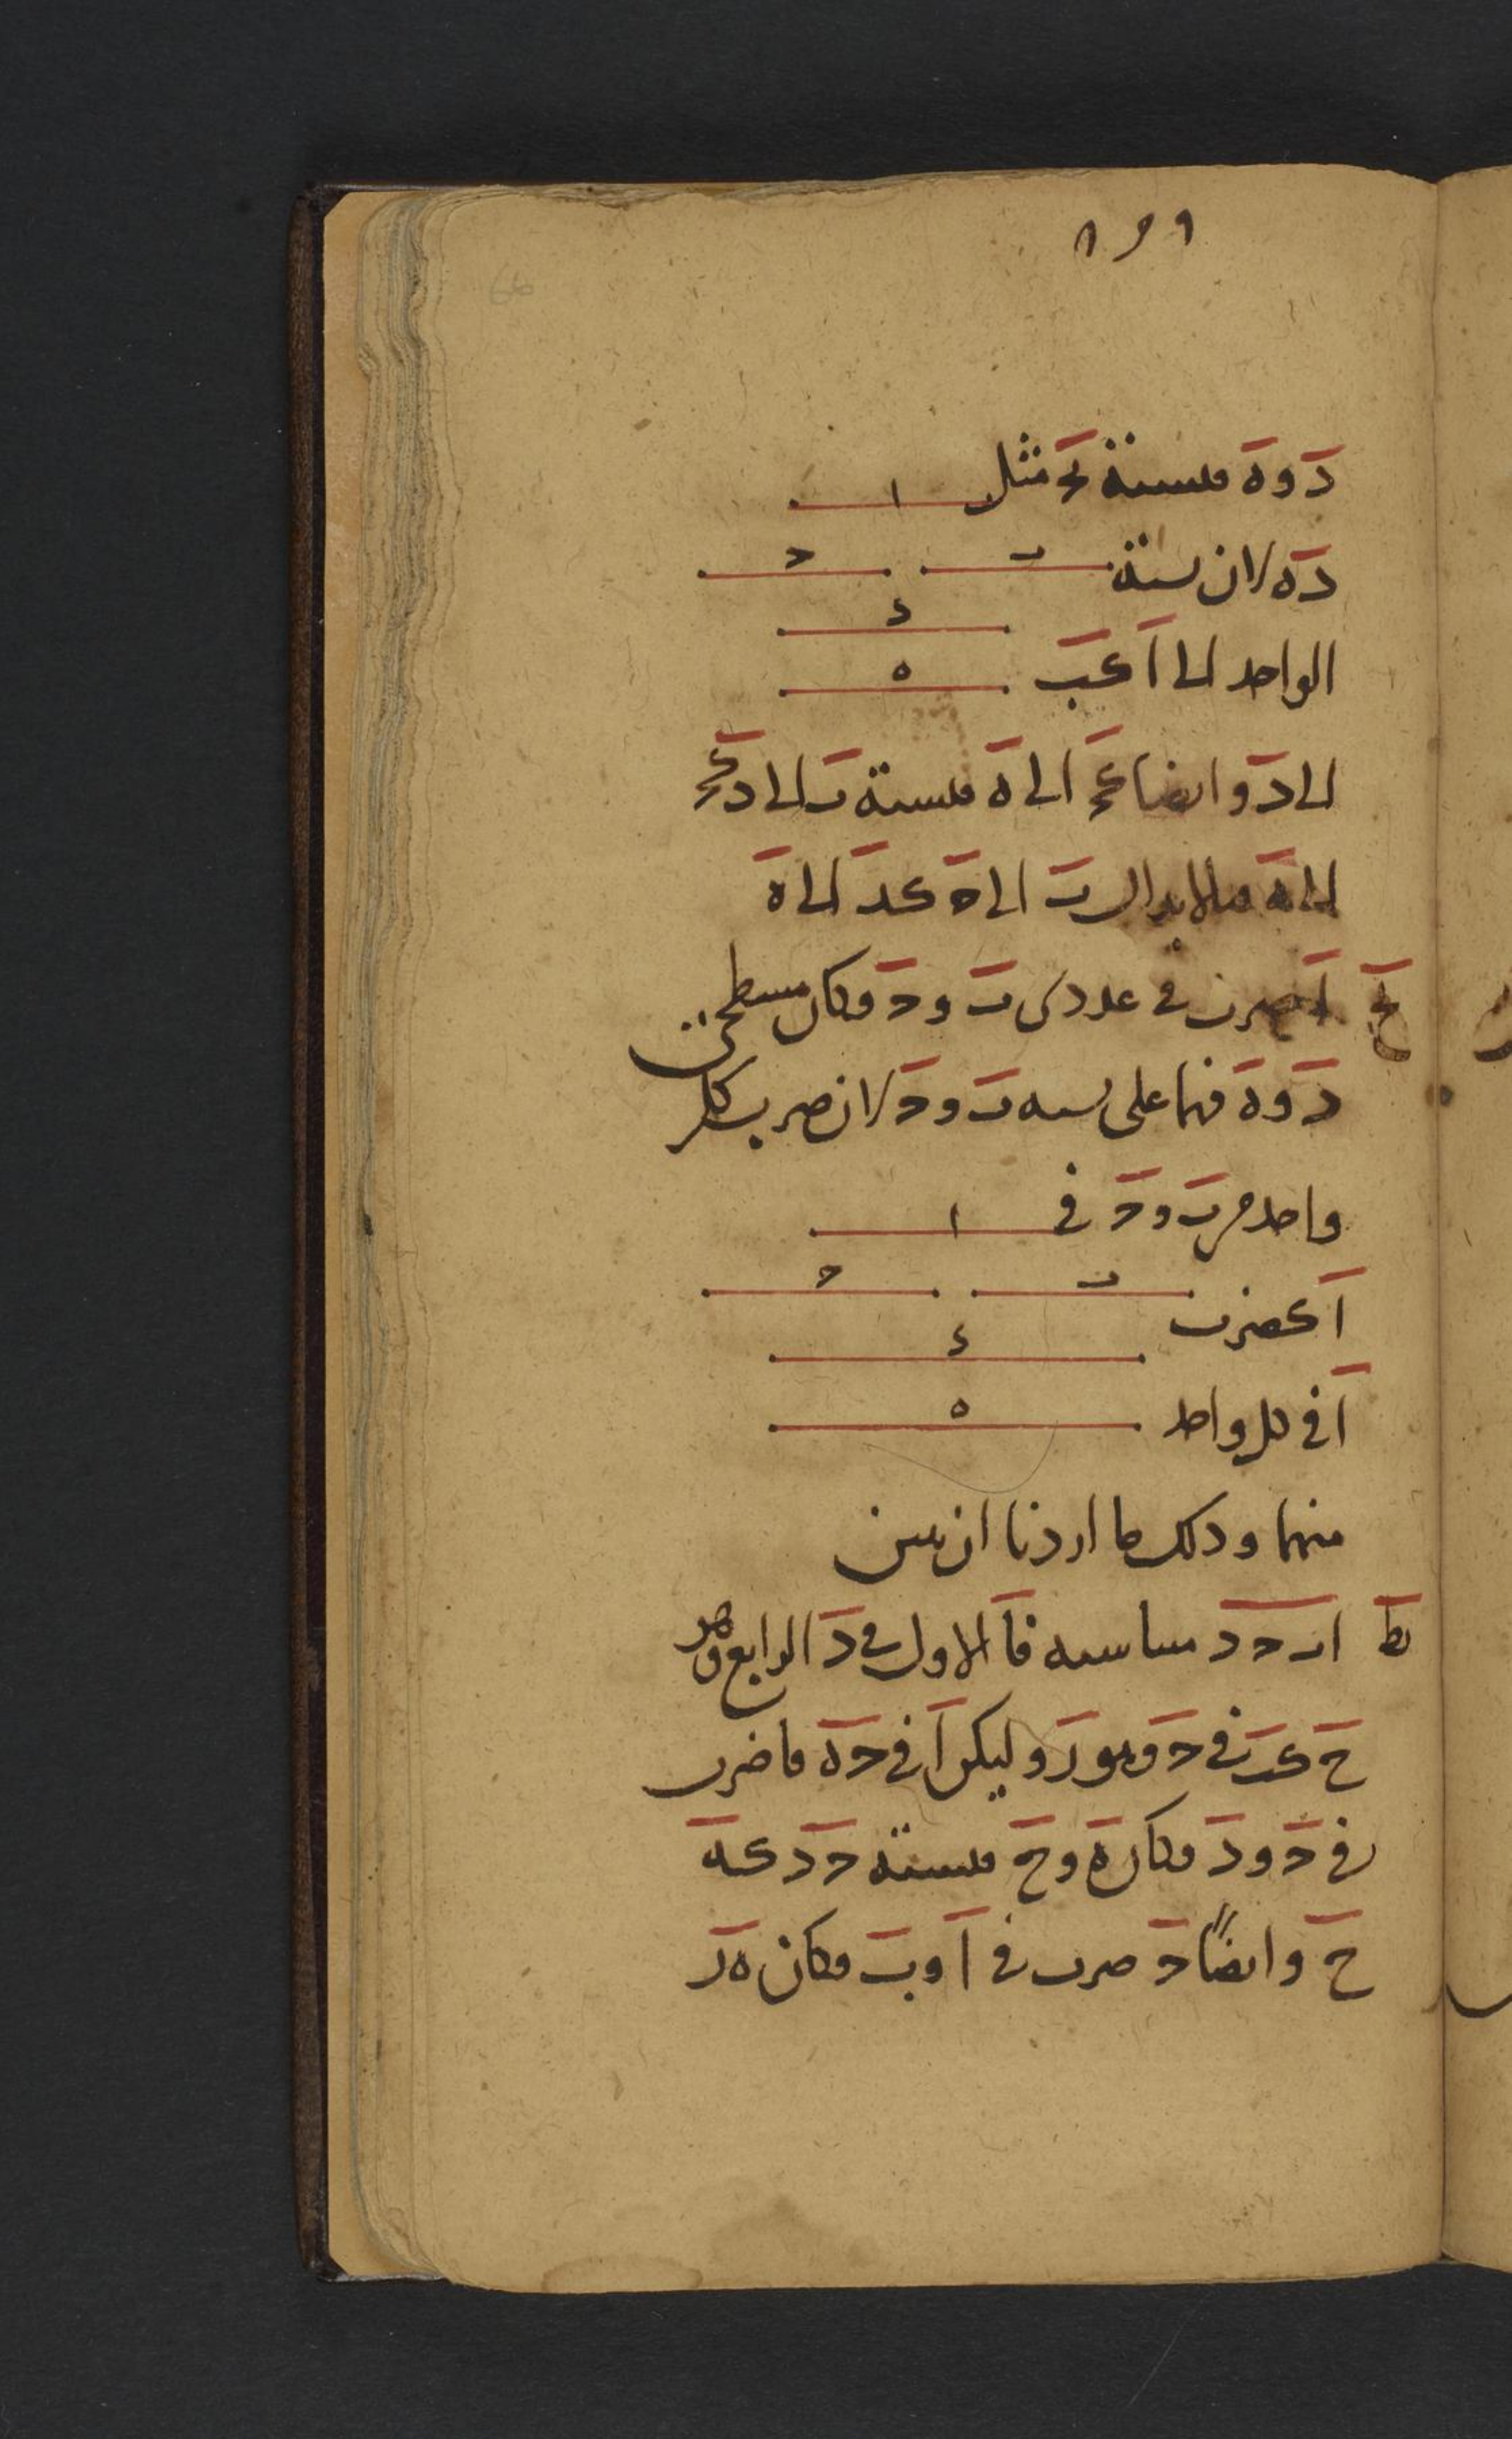 ١٣١
66
د و ه فنسبة بح مثل
ا
ده لان نسبة
ب
ح
د
الواحد الى ا كب
ه
الى د و ايضا كح الى ه فنسبة ب الى د كح
الى ه فبالابدال ب الى ح كد الى ه
يح ا ضرب في عددى ب و ح فكان مسطحى
د و ه فهما على نسبه ب و ح لان ضرب كل
واحد من ب و ح في
ا
ا كضرب
ب
ح
د
ا في كل واحد
ه
منهما و ذلك ما اردنا ان نبين
يط ا ب ح د متناسبه فا الاول في د الرابع وهو
ح كب في ح وهو ر وليكن ا في ح ه فا ضرب
في ح و د فكان ه و ح فنسبة ح د كه
ح وايضًا ح ضرب في ا و ب فكان ه ر